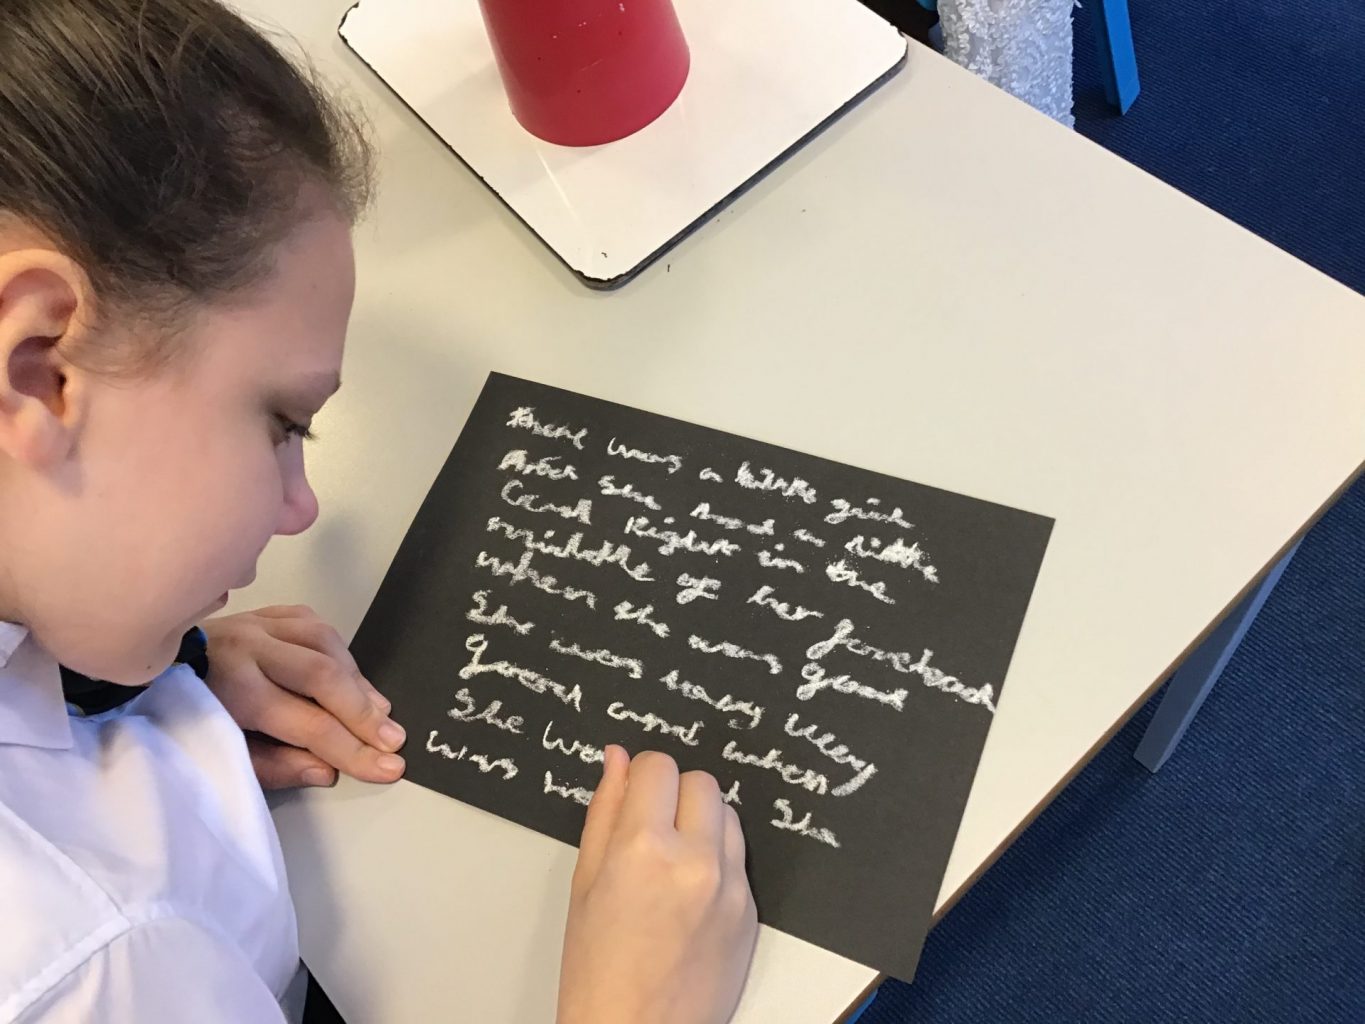 there was a little girl
And she had a little
Curl Right in the
middle of her forehead
when she was good
She was very very
good and when
She
was
She